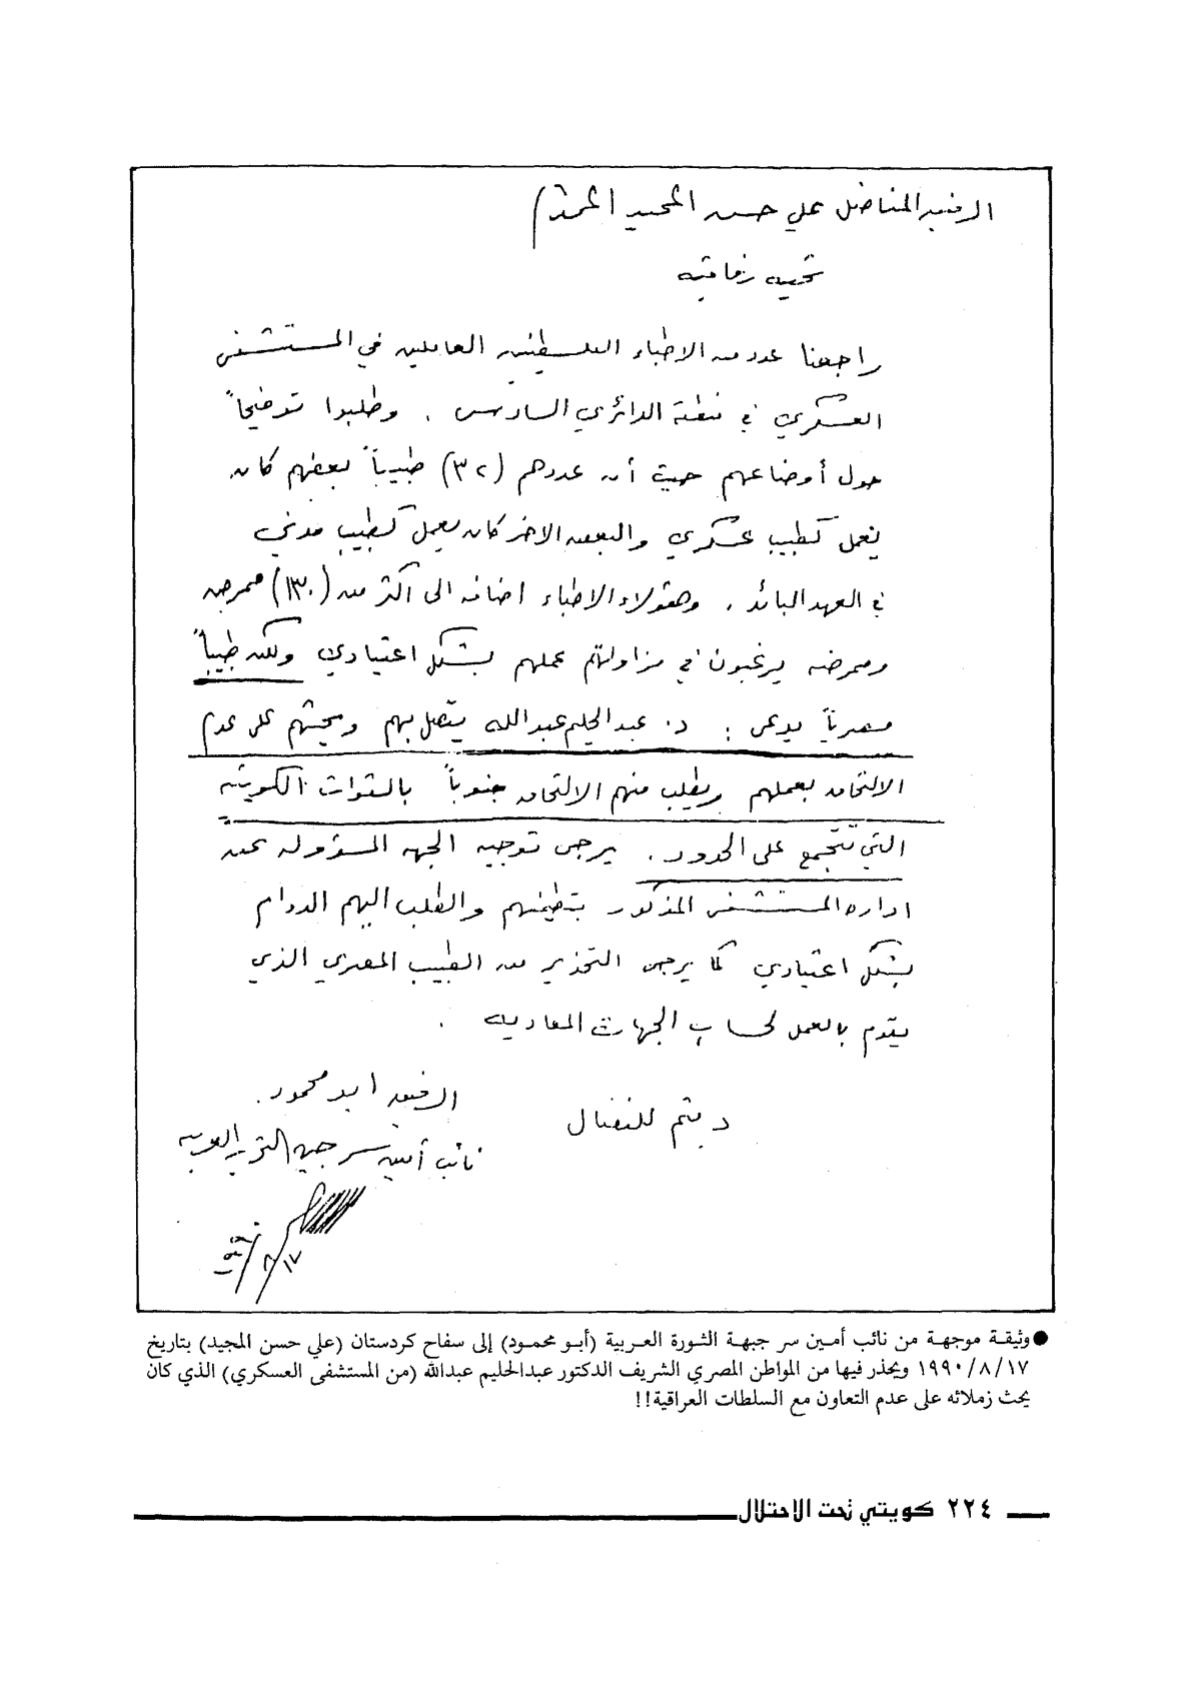 الرفيق المناضل علي حسن المجيد المحترم
تحيه رفاقيه
راجعنا عدد من الاطباء الفلسطينين العاملين في المستشفى
العسكري في منطقة الدائري السادس . وطلبوا توضيحاً
حول أوضاعهم حيث أن عددهم (٣٢) طبيباً بعضهم كان
يعمل كطبيب عسكري والبعض الاخر كان يعمل كطبيب مدني
في العهد البائد . وهؤلاء الاطباء اضافه الى اكثر من (١٣٠) ممرض
وممرضه يرغبون في مزاولتهم عملهم بشكل اعتيادي ولكن طبيباً
مصرياً يدعى : د. عبدالحليم عبدالله يتصل بهم ويحثهم على عدم
الالتحاق بعملهم ويطلب منهم الالتحاق جنوباً بالقوات الكويتيه
التي تتجمع على الحدود . يرجى توجيه الجهه المسؤوله عن
اداره المستشفى المذكور بتطمينهم والطلب اليهم الدوام
بشكل اعتيادي كما يرجى التحذير من الطبيب المصري الذي
يقوم بالعمل لحساب الجهات المعاديه .
ودمتم للنضال
الرفيق ابو محمود .
نائب أمين سر جبهه التحرير العربيه
١٧/٨/١٩٩٠
● وثيقة موجهة من نائب أمين سر جبهة الثورة العربية (أبو محمود) إلى سفاح كردستان (علي حسن المجيد) بتاريخ
١٧/٨/١٩٩٠ ويحذر فيها من المواطن المصري الشريف الدكتور عبدالحليم عبدالله (من المستشفى العسكري) الذي كان
يحث زملائه على عدم التعاون مع السلطات العراقية!!
٢٢٤ كويتي تحت الاحتلال